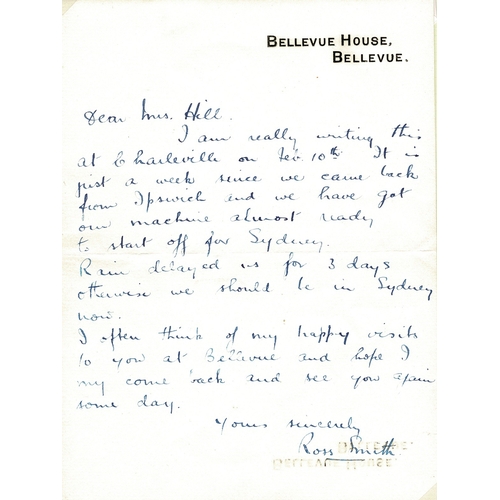 BELLEVUE HOUSE,
BELLEVUE.
Dear Mrs. Hill.
I am really writing this
at Charleville on Feb. 10th. It is
just a week since we came back
from Ipswich and we have got
our machine almost ready
to start off for Sydney.
Rain delayed us for 3 days
otherwise we should be in Sydney
now.
I often think of my happy visits
to you at Bellevue and hope I
my come back and see you again
some day.
Yours sincerely
Ross Smith
BELLEVUE.
BELLEVUE HOUSE,